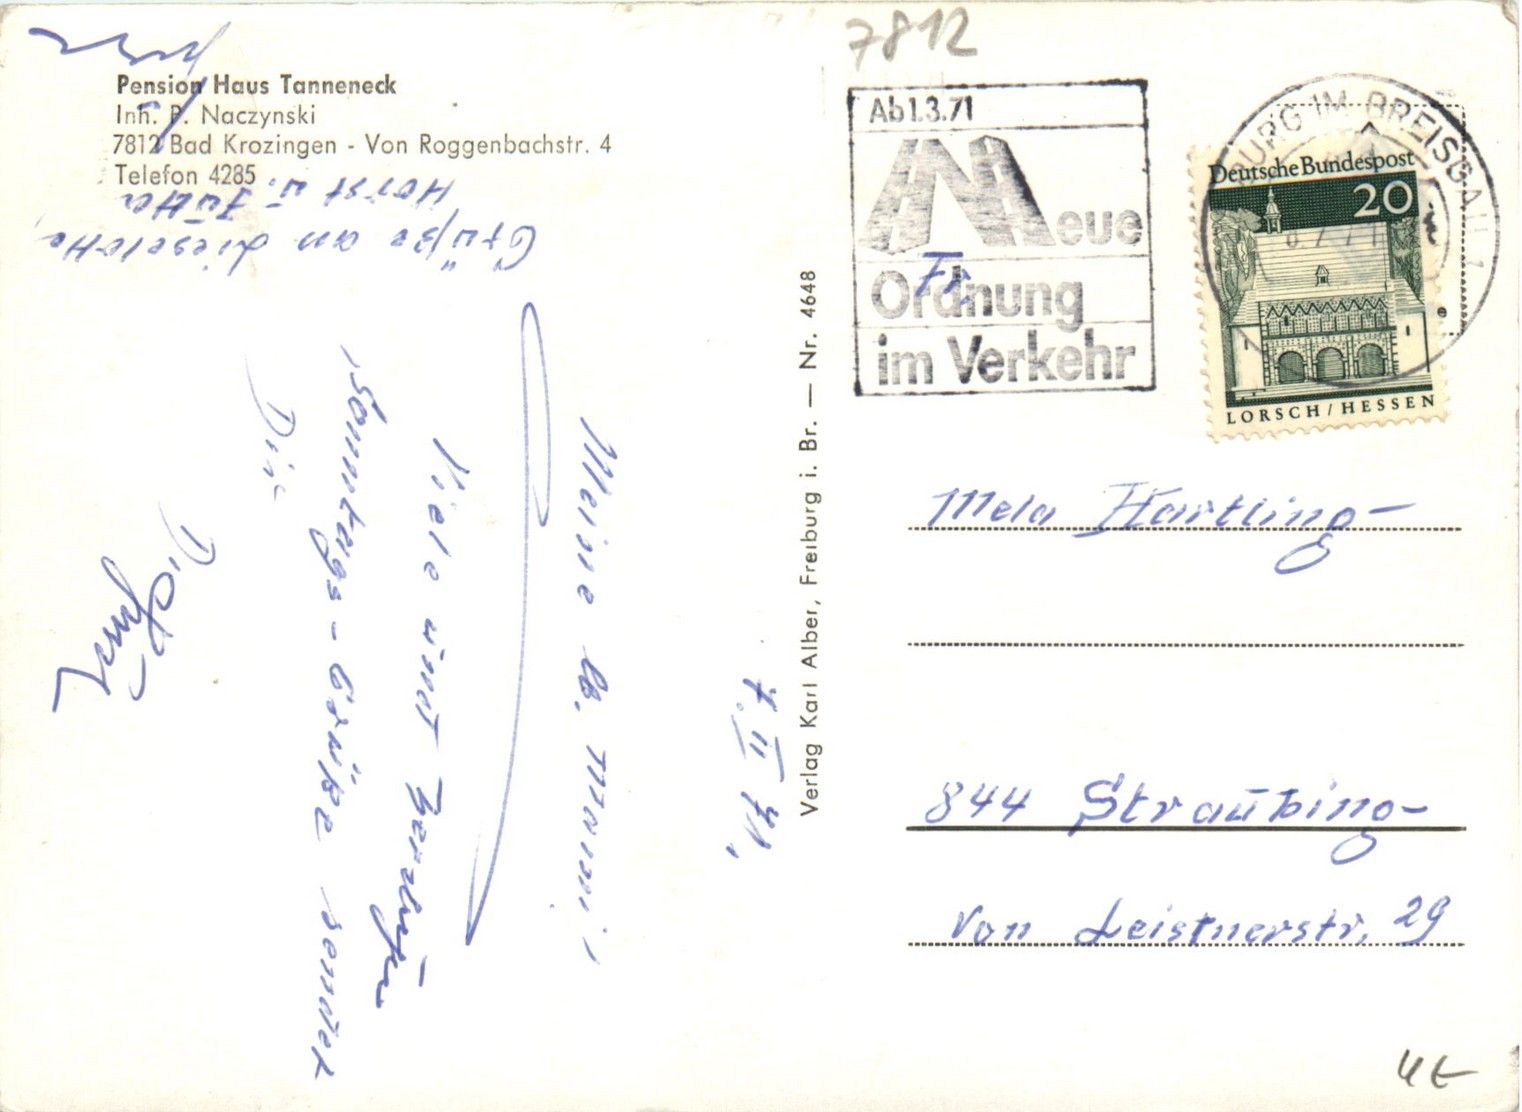 7812
Pension Haus Tanneneck
Inh. P. Naczynski
7812 Bad Krozingen - Von Roggenbachstr. 4
Telefon 4285
Ab 1.3.71
Neue
Ordnung
im Verkehr
BURG IM BREISGAU 1
Deutsche Bundespost
20
LORSCH/HESSEN
Verlag Karl Alber, Freiburg i. Br. — Nr. 4648
Fr.
Mela Hartling-
844 Straubing-
Von Leistnerstr. 29
7. II 71,
Meine lb. Mammi,
Viele und
Sonntags-Grüße sendet
Dir
Grüße an Lieselotte
Horst u. Jutta